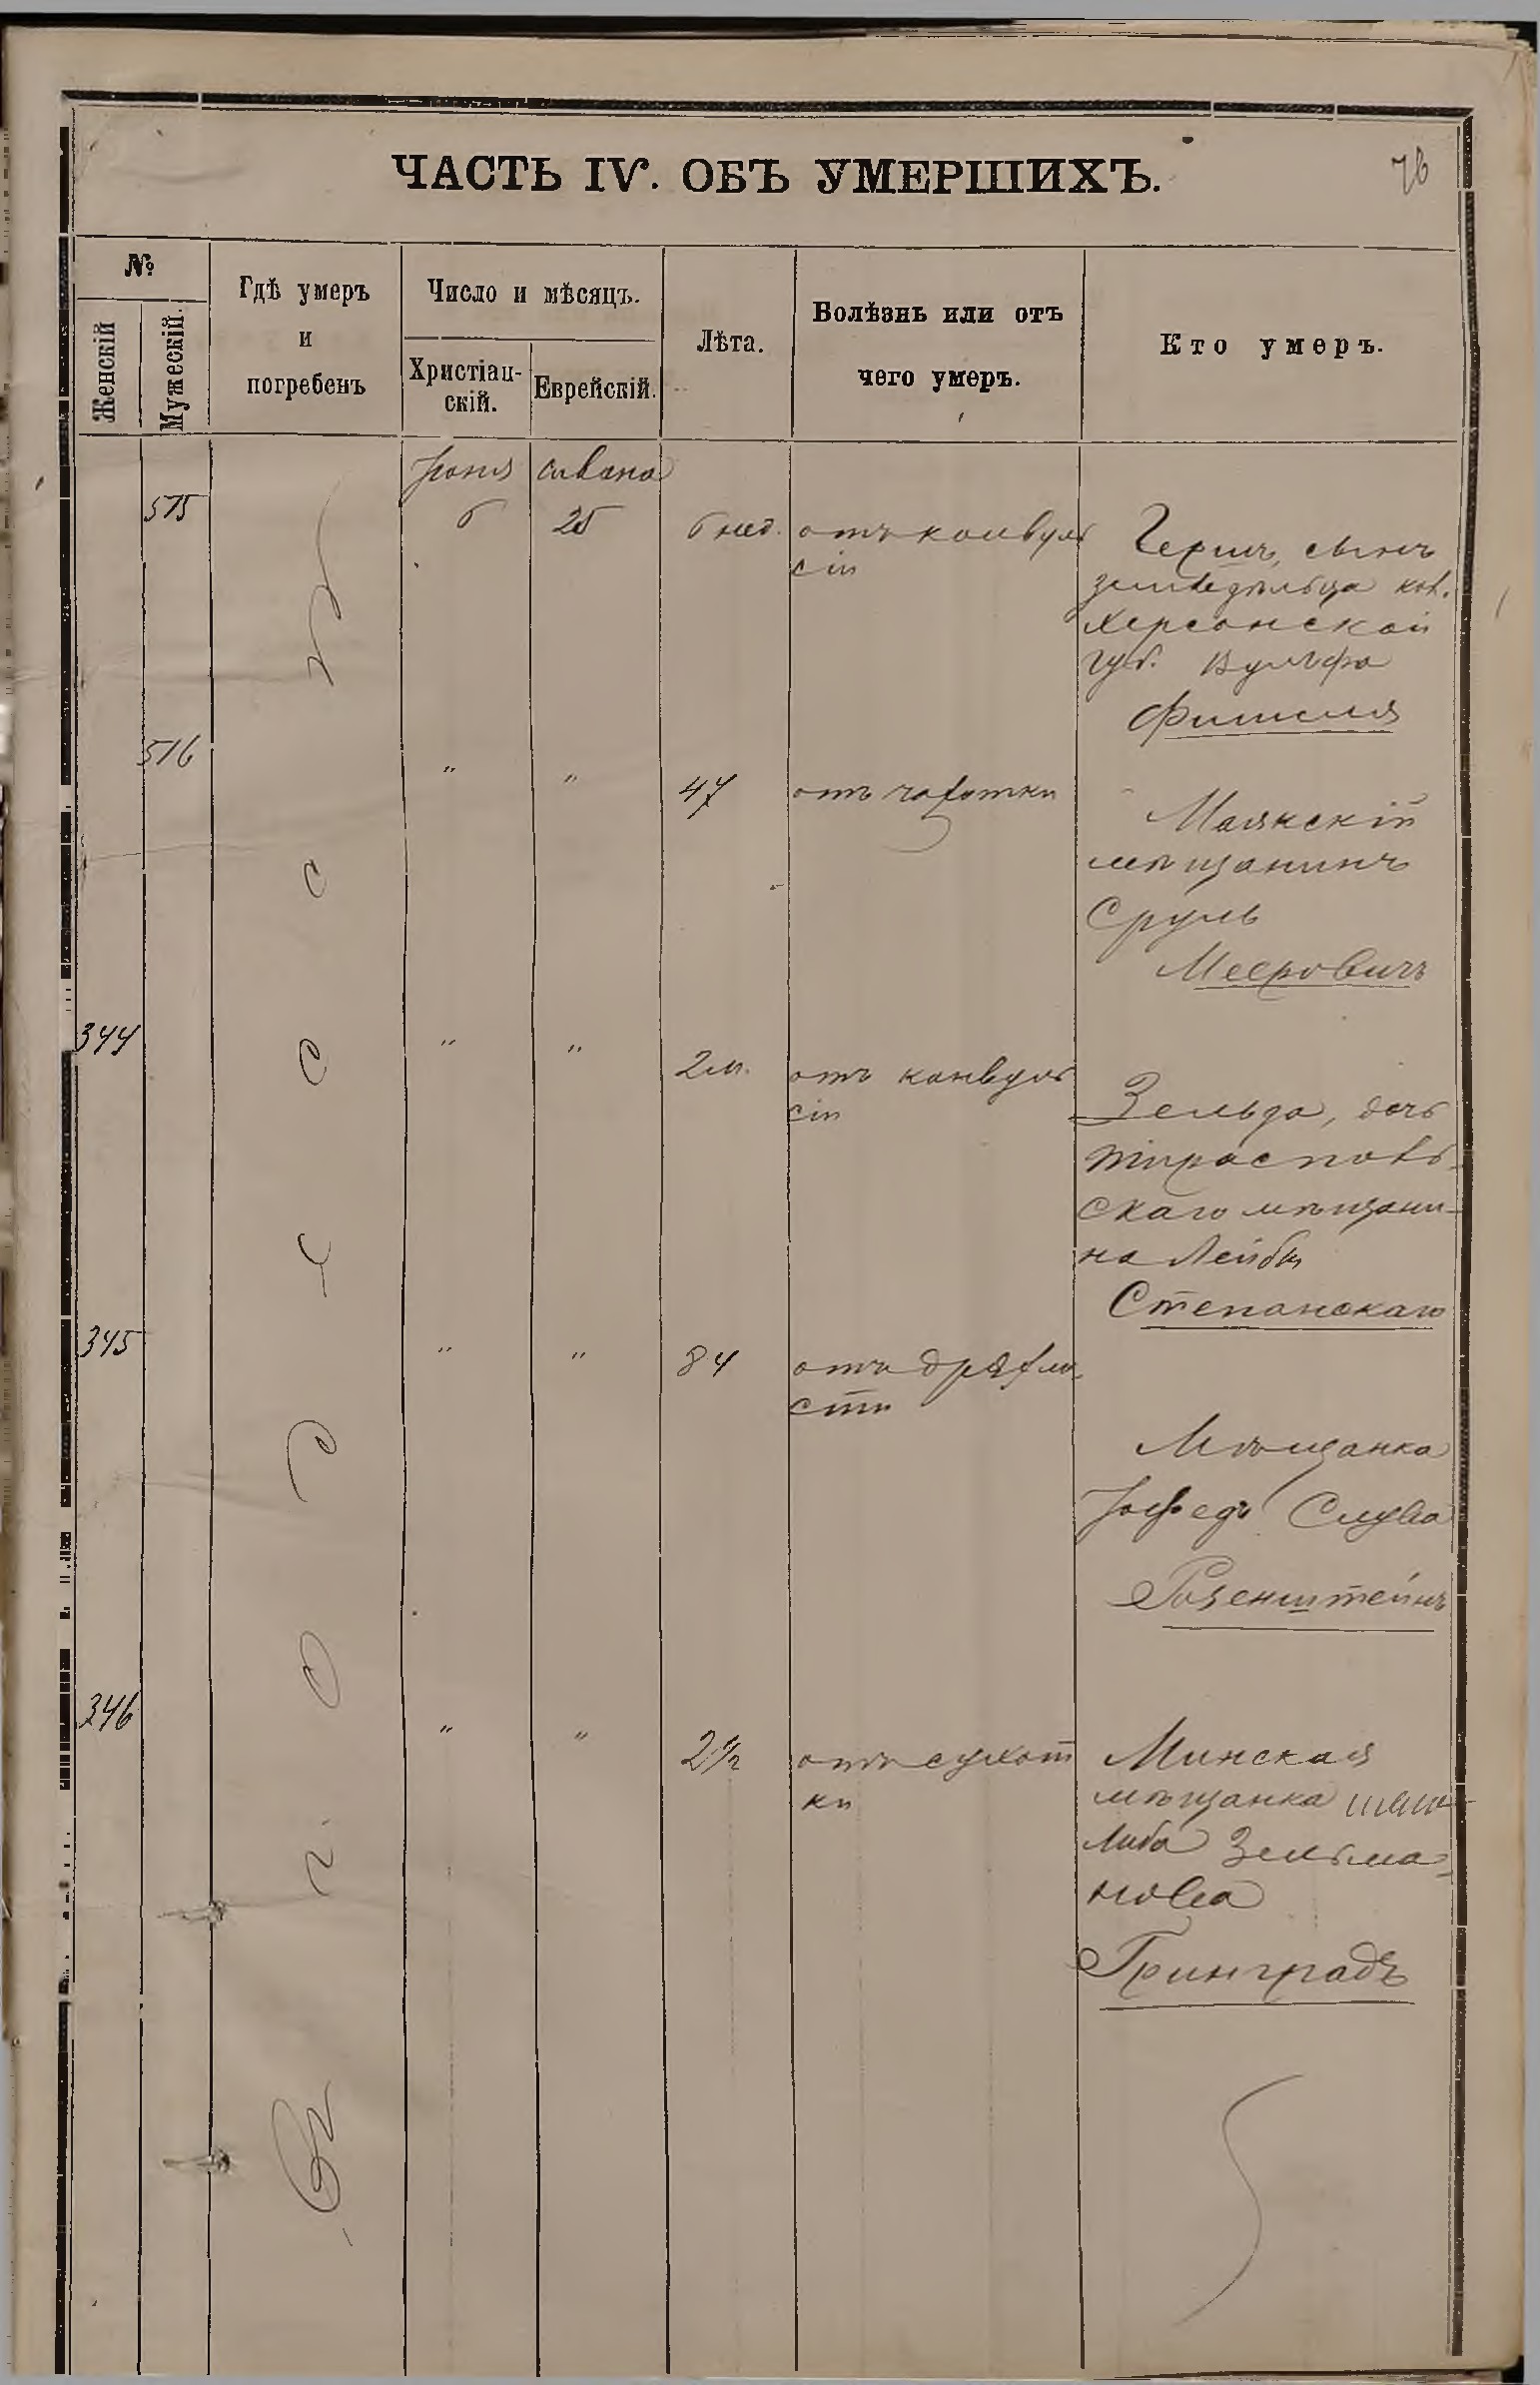 ЧАСТЬ IV. ОБЪ УМЕРШИХЪ.
76
№
Женскій
Мужескій.
Гдѣ умеръ
и
погребенъ
Число и мѣсяцъ.
Христіан-
скій.
Еврейскій.
Лѣта.
Болѣзнь или отъ
чего умеръ.
Кто умеръ.
Въ г. Одессѣ
Іюня
сивана
515
6
25
6 нед.
отъ конвуль
сіи
Гершъ, сынъ
земледѣльца кол.
Херсонской
губ. Вульфа
Фишеля
516
"
"
47
отъ чахотки
Маякскій
мѣщанинъ
Сруль
Мееровичъ
344
"
"
2 м.
отъ конвуль
сіи
Зельда, дочь
тирасполь-
скаго мѣщани-
на Лейбы
Степанскаго
345
"
"
84
отъ дряхло-
сти
Мѣщанка
Слува
Розенштейнъ
346
"
"
2 1/2
отъ сухот
ки
Минская
мѣщанка
Либа Зельма-
нова
Гринградъ